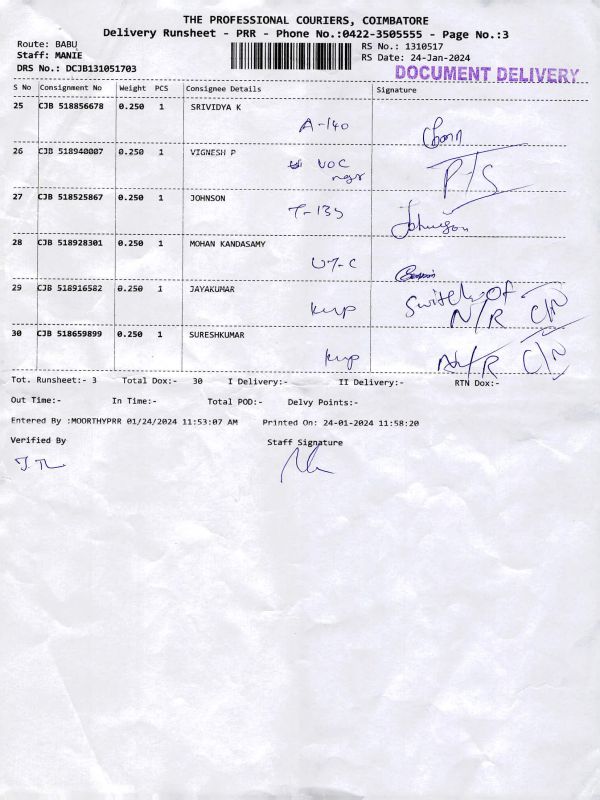 THE PROFESSIONAL COURIERS, COIMBATORE
Delivery Runsheet - PRR - Phone No.:0422-3505555 - Page No.:3
Route: BABU
RS No.: 1310517
Staff: MANIE
RS Date: 24-Jan-2024
DRS No.: DCJB131051703
DOCUMENT DELIVERY
S No Consignment No Weight PCS Consignee Details Signature
25 CJB 518856678 0.250 1 SRIVIDYA K
A-140
26 CJB 518940007 0.250 1 VIGNESH P
VOC
P/S
27 CJB 518525867 0.250 1 JOHNSON
Johnson
28 CJB 518928301 0.250 1 MOHAN KANDASAMY
29 CJB 518916582 0.250 1 JAYAKUMAR
Switch of
N/R C/N
30 CJB 518659899 0.250 1 SURESHKUMAR
C/N
Tot. Runsheet:- 3 Total Dox:- 30 I Delivery:- II Delivery:- RTN Dox:-
Out Time:- In Time:- Total POD:- Delvy Points:-
Entered By :MOORTHYPRR 01/24/2024 11:53:07 AM Printed On: 24-01-2024 11:58:20
Verified By Staff Signature